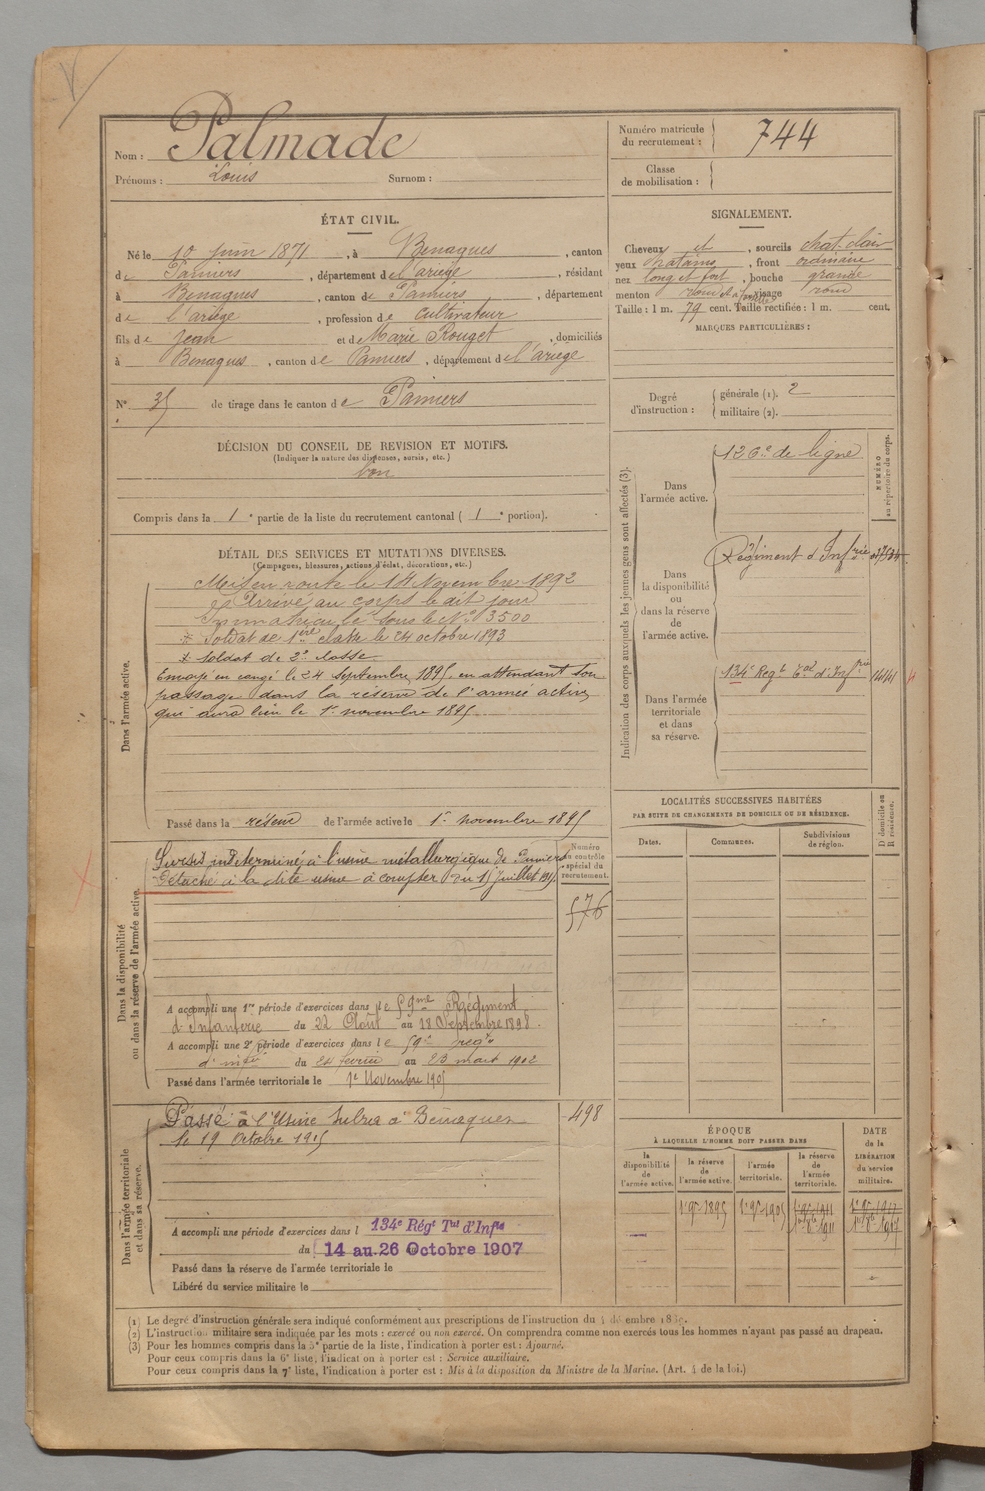 Nom : Palmade
Prénoms : Louis Surnom :
Numéro matricule du recrutement : 744
Classe de mobilisation :
ÉTAT CIVIL.
Né le 10 juin 1871, à Benagues, canton
de Pamiers, département de l'ariège, résidant
à Benagues, canton de Pamiers, département
de l'ariège, profession de cultivateur
fils de Jean et de Marie Rouget, domiciliés
à Benagues, canton de Pamiers, département de l'ariège
N° 35 de tirage dans le canton de Pamiers
SIGNALEMENT.
Cheveux et, sourcils chat. clair
yeux chatains, front ordinaire
nez long et fort, bouche grande
menton rond et à visage rond
Taille : 1 m. 79 cent. Taille rectifiée : 1 m. cent.
MARQUES PARTICULIÈRES :
Degré d'instruction : générale (1). 2
militaire (2).
DÉCISION DU CONSEIL DE REVISION ET MOTIFS.
(Indiquer la nature des dispenses, sursis, etc.)
bon
Compris dans la 1e partie de la liste du recrutement cantonal (1e portion).
DÉTAIL DES SERVICES ET MUTATIONS DIVERSES.
(Campagnes, blessures, actions d'éclat, décorations, etc.)
Dans l'armée active.
Mis en route le 14 Novembre 1892
Arrivé au corps le dit jour
Immatriculé sous le N° 3500
* Soldat de 1ère classe le 24 octobre 1893
* soldat de 2e classe
Envoyé en congé le 24 septembre 1895, en attendant son
passage dans la réserve de l'armée active
qui aura lieu le 1er novembre 1895.
Passé dans la réserve de l'armée active le 1er novembre 1895
Indication des corps auxquels les jeunes gens sont affectés (3).
NUMÉRO au répertoire du corps.
Dans l'armée active. 126e de ligne
Dans la disponibilité ou dans la réserve de l'armée active. Régiment d'Infrie
Dans l'armée territoriale et dans sa réserve. 134e Regt Tal d'Infrie
LOCALITÉS SUCCESSIVES HABITÉES
PAR SUITE DE CHANGEMENTS DE DOMICILE OU DE RÉSIDENCE.
Dates. Communes. Subdivisions de région. D domicile ou R résidence.
Dans la disponibilité ou dans la réserve de l'armée active.
Sursis indéterminé à l'usine métallurgique de Pamiers
Détaché à la dite usine à compter du 15 Juillet 1915.
Numéro au contrôle spécial du recrutement.
576
A accompli une 1re période d'exercices dans le 59me Régiment
d'Infanterie du 22 Août au 18 Septembre 1898.
A accompli une 2e période d'exercices dans le 59e regt
d'infie du 24 février au 23 mars 1902
Passé dans l'armée territoriale le 1er Novembre 1905
Dans l'armée territoriale et dans sa réserve.
Passé à l'Usine à Benagues
le 19 Octobre 1915
498
A accompli une période d'exercices dans l 134e Régt Tal d'Infie
du 14 au 26 Octobre 1907
Passé dans la réserve de l'armée territoriale le
Libéré du service militaire le
ÉPOQUE
À LAQUELLE L'HOMME DOIT PASSER DANS
DATE de la LIBÉRATION du service militaire.
la disponibilité de l'armée active. la réserve de l'armée active. l'armée territoriale. la réserve de l'armée territoriale.
1er 9bre 1895 1er 9bre 1905 1er 9bre 1911 1er 9bre 1917
(1) Le degré d'instruction générale sera indiqué conformément aux prescriptions de l'instruction du 4 décembre 1889.
(2) L'instruction militaire sera indiquée par les mots : exercé ou non exercé. On comprendra comme non exercés tous les hommes n'ayant pas passé au drapeau.
(3) Pour les hommes compris dans la 5e partie de la liste, l'indication à porter est : Ajourné.
Pour ceux compris dans la 6e liste, l'indication à porter est : Service auxiliaire.
Pour ceux compris dans la 7e liste, l'indication à porter est : Mis à la disposition du Ministre de la Marine. (Art. 4 de la loi.)